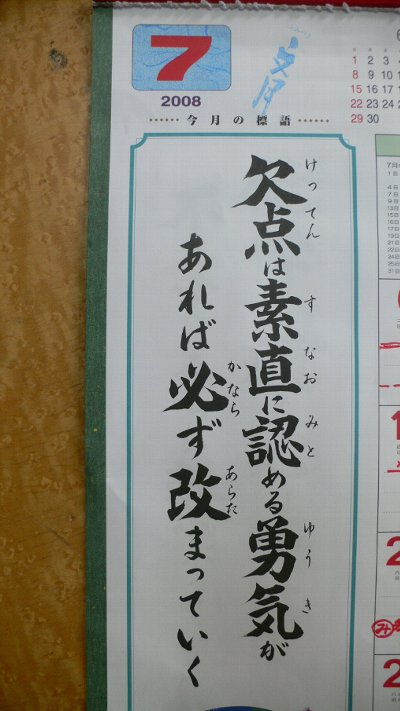 7
2008
文月
今月の標語
欠点は素直に認める勇気が
けってん すなお みと ゆうき
あれば必ず改まっていく
かなら あらた
6
1 2 3
8 9 10
15 16 17
22 23 24
29 30
7月